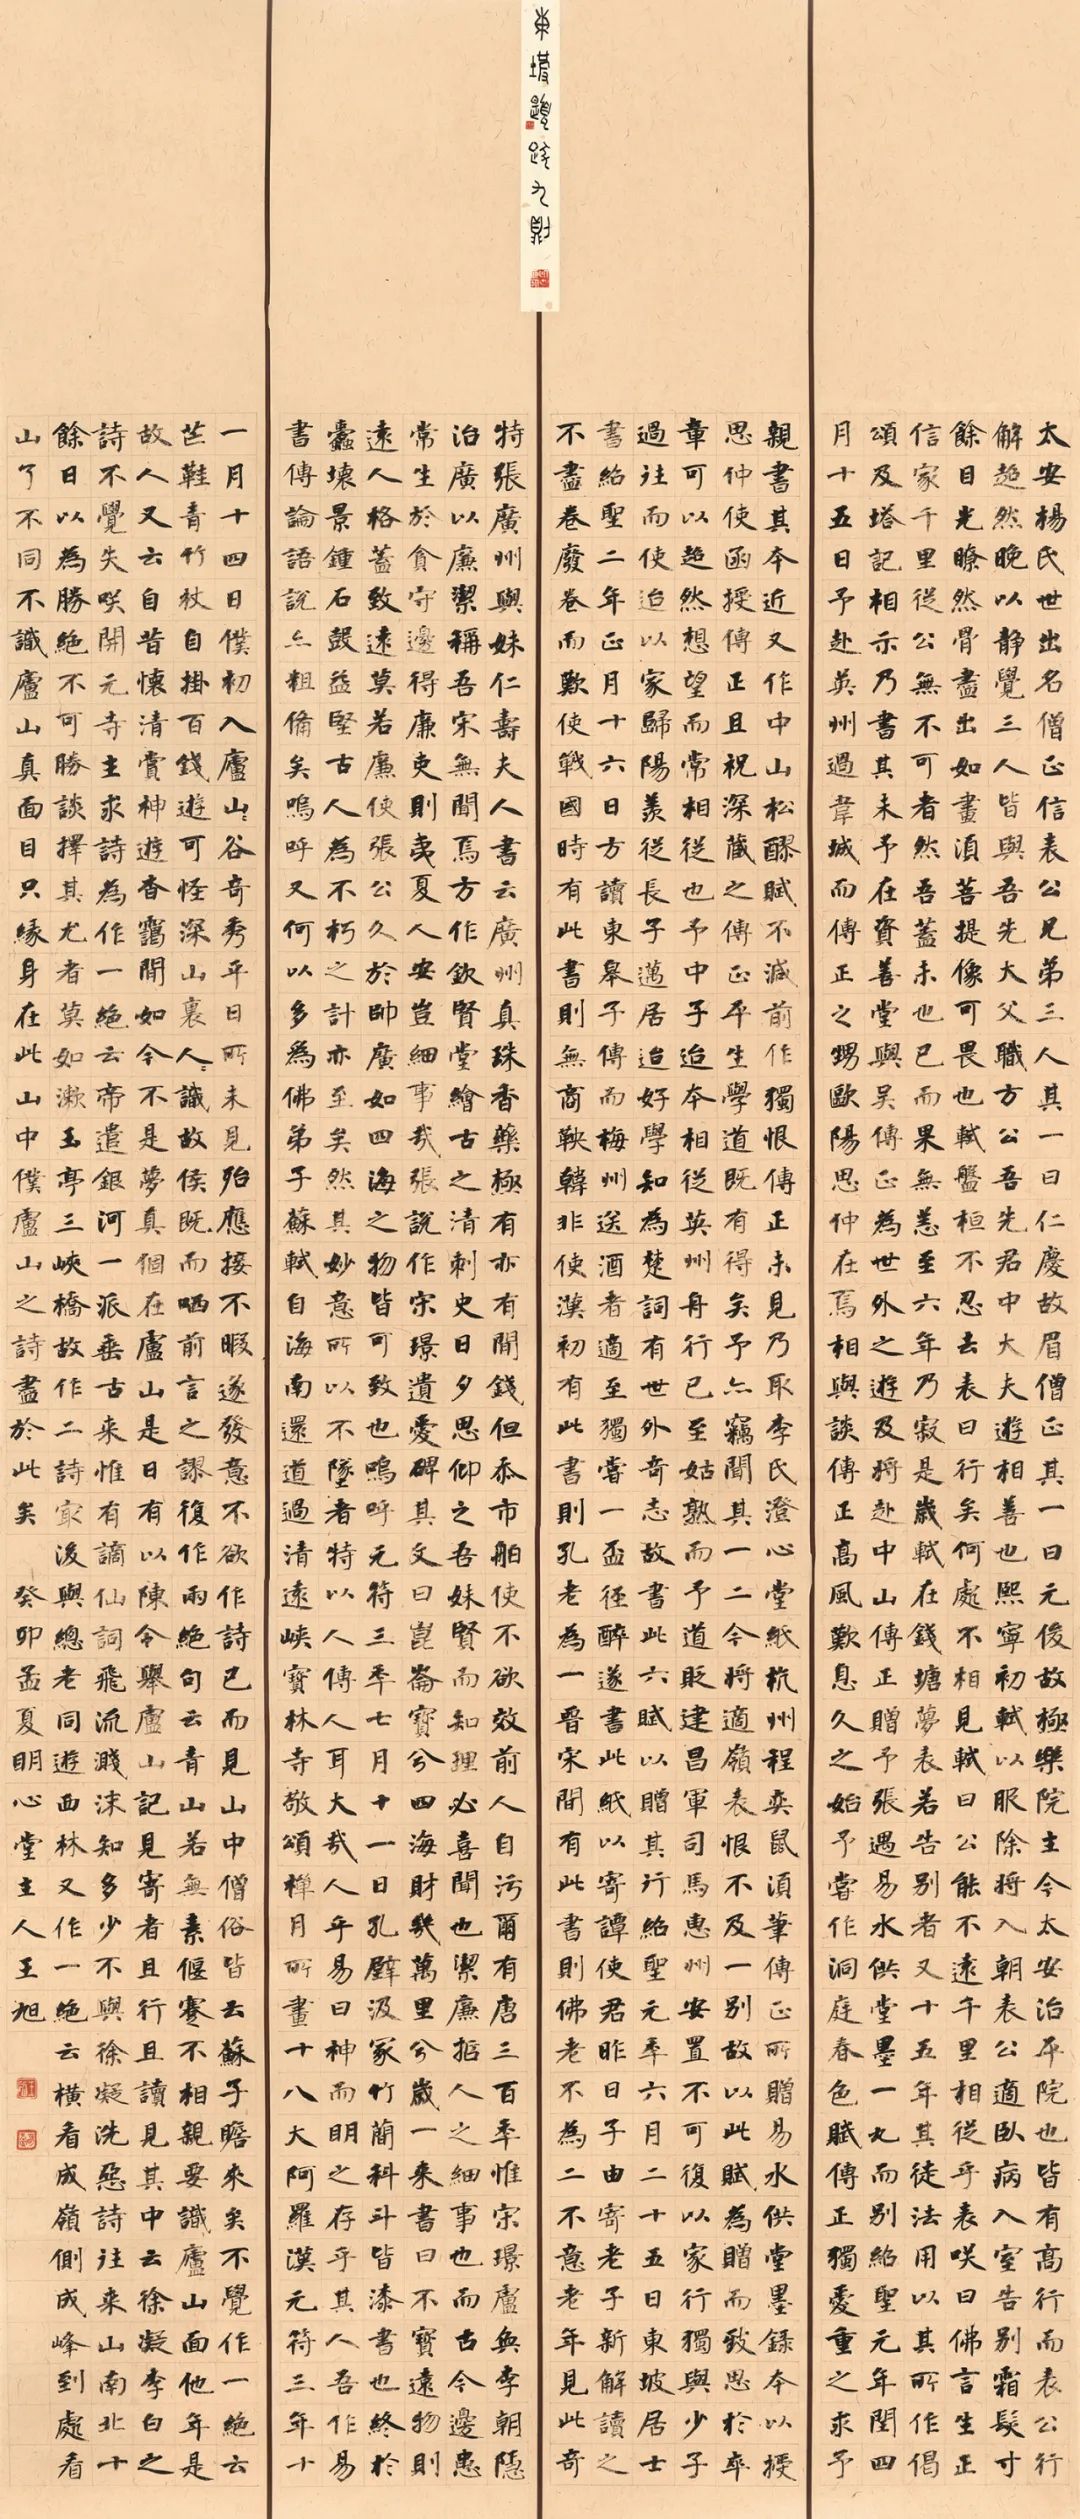 東坡題跋九則
太安楊氏世出名僧正信表公兄弟三人其一曰仁慶故眉僧正其一曰元俊故極樂院主今太安治平院也皆有高行而表公行
解超然晚以静覺三人皆與吾先大父職方公吾先君中大夫遊相善也熙寧初軾以服除將入朝表公適臥病入室告別霜髮寸
餘目光瞭然骨盡出如畫須菩提像可畏也軾盤桓不忍去表曰行矣何處不相見軾曰公能不遠千里相從乎表咲曰佛言生正
信家千里從公無不可者然吾蓋未也已而果無恙至六年乃寂是歲軾在錢塘夢表若告別者又十五年其徒法用以其所作偈
頌及塔記相示乃書其末予在資善堂與吳傳正為世外之遊及將赴中山傳正贈予張遇易水供堂墨一丸而別紹聖元年閏四
月十五日予赴英州過韋城而傳正之甥歐陽思仲在焉相與談傳正高風歎息久之始予嘗作洞庭春色賦傳正獨愛重之求予
親書其本近又作中山松醪賦不減前作獨恨傳正未見乃取李氏澄心堂紙杭州程奕鼠須筆傳正所贈易水供堂墨錄本以授
思仲使函授傳正且祝深藏之傳正平生學道既有得矣予亦竊聞其一二今將適嶺表恨不及一別故以此賦為贈而致思於卒
章可以超然想望而常相從也予中子迨本相從英州舟行已至姑熟而予道貶建昌軍司馬惠州安置不可復以家行獨與少子
過往而使迨以家歸陽羨從長子邁居迨好學知為楚詞有世外奇志故書此六賦以贈其行紹聖元年六月二十五日東坡居士
書紹聖二年正月十六日方讀東皋子傳而梅州送酒者適至獨嘗一盃徑醉遂書此紙以寄譚使君昨日子由寄老子新解讀之
不盡卷廢卷而歎使戰國時有此書則無商鞅韓非使漢初有此書則孔老為一晉宋間有此書則佛老不為二不意老年見此奇
特張廣州與妹仁壽夫人書云廣州真珠香藥極有亦有閒錢但忝市舶使不欲效前人自污爾有唐三百年惟宋璟盧奐李朝隱
治廣以廉潔稱吾宋無聞焉方作欽賢堂繪古之清刺史日夕思仰之吾妹賢而知理必喜聞也潔廉拒人之細事也而古今邊患
常生於貪守邊得廉吏則夷夏人安豈細事哉張說作宋璟遺愛碑其文曰崑崙寶兮四海財幾萬里兮歲一來書曰不寶遠物則
遠人格蓋致遠莫若廉使張公久於帥廣如四海之物皆可致也嗚呼元符三年七月十一日孔壁汲冢竹簡科斗皆漆書也終於
蠹壞景鍾石鼓益堅古人為不朽之計亦至矣然其妙意所以不墜者特以人傳人耳大哉人乎易曰神而明之存乎其人吾作易
書傳論語說亦粗備矣嗚呼又何以多為佛弟子蘇軾自海南還道過清遠峽寶林寺敬頌禪月所畫十八大阿羅漢元符三年十
一月十四日僕初入廬山山谷奇秀平日所未見殆應接不暇遂發意不欲作詩已而見山中僧俗皆云蘇子瞻來矣不覺作一絕云
芒鞋青竹杖自掛百錢遊可怪深山裏人人識故侯既而哂前言之謬復作兩絕句云青山若無素偃蹇不相親要識廬山面他年是
故人又云自昔懷清賞神遊杳靄間如今不是夢真個在廬山是日有以陳令舉廬山記見寄者且行且讀見其中云徐凝李白之
詩不覺失咲開元寺主求詩為作一絕云帝遣銀河一派垂古來惟有謫仙詞飛流濺沫知多少不與徐凝洗惡詩往來山南北十
餘日以為勝絕不可勝談擇其尤者莫如漱玉亭三峽橋故作二詩最後與總老同遊西林又作一絕云橫看成嶺側成峰到處看
山了不同不識廬山真面目只緣身在此山中僕廬山之詩盡於此矣 癸卯孟夏明心堂主人王旭